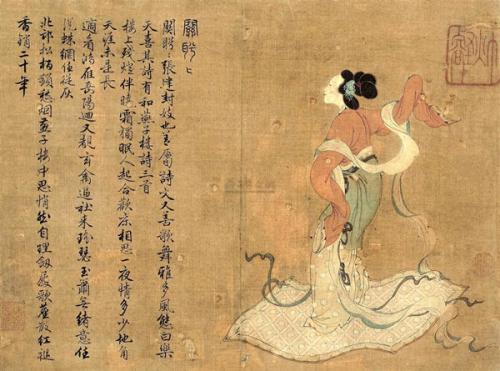 關盼〻
關盼〻張建封妓也善屬詩文又善歌舞雅多風態白樂
天喜其詩有和燕子樓詩三首
樓上殘燈伴曉霜獨眠人起合歡床相思一夜情多少地角
天涯未是長
適看鴻雁岳陽迴又覩玄禽逼社來瑤瑟玉簫無緒意任
從蛛網任從灰
北邙松柏鎖愁烟燕子樓中思悄然自理劍履歌塵散紅袖
香銷二十年